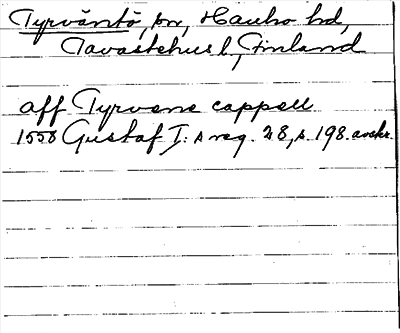 Tyrväntö, sn, Hauho hd,
Tavastehus l, Finland
aff Tyrvene cappell
1558 Gustaf I:s reg. 28, s. 198. avskr.